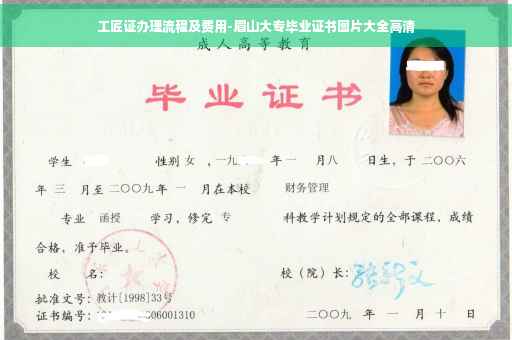 工匠证办理流程及费用-眉山大专毕业证书图片大全高清
成人高等教育
毕业证书
学生 性别 女 ，一九 年 一 月 八 日生，于二〇〇六
年 三 月至二〇〇九年 一 月在本校 财务管理
专业 函授 学习，修完 专 科教学计划规定的全部课程，成绩
合格，准予毕业。
校 名： 校（院）长：
批准文号：教计[1998]33号
证书编号： 06001310 二〇〇九 年 一 月 十 日